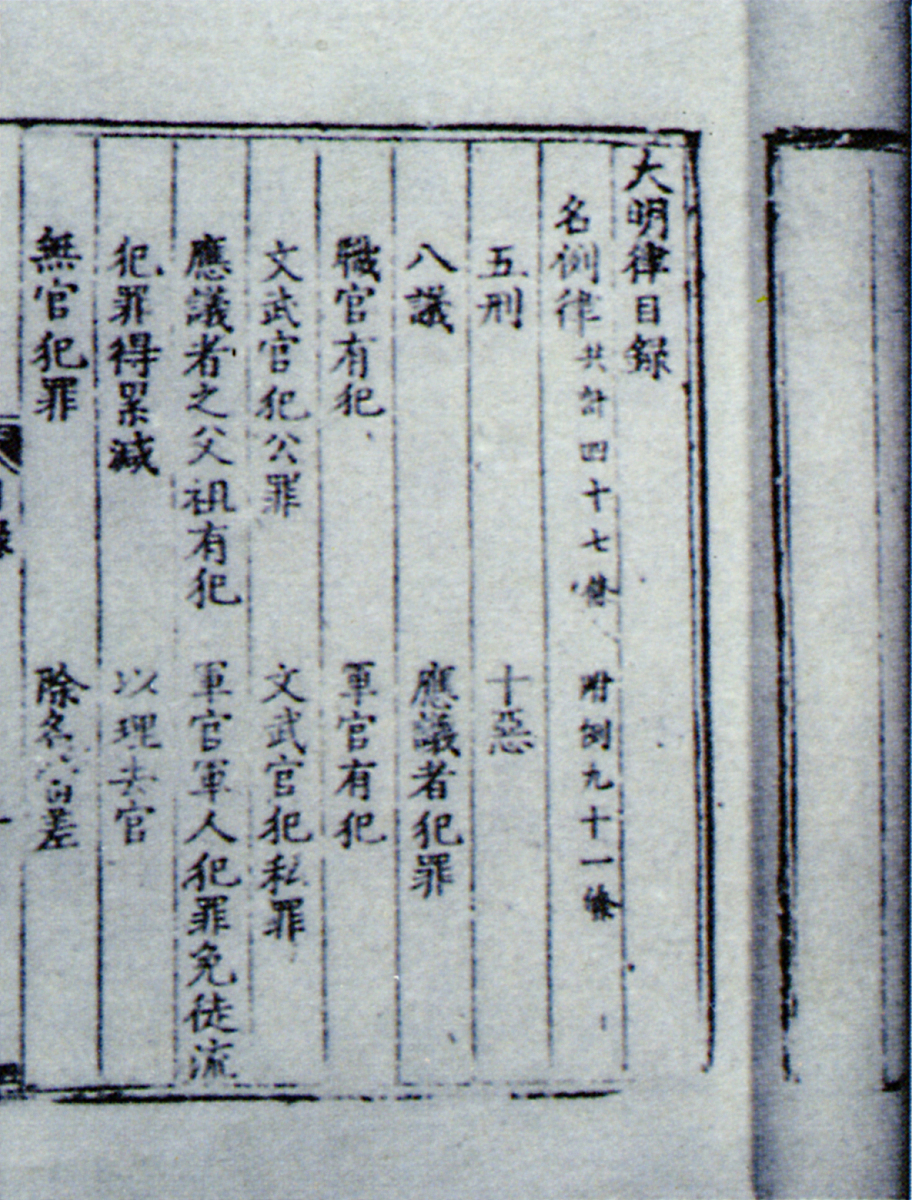 大明律目録
名例律 共計四十七條 附例九十一條
五刑 十惡
八議 應議者犯罪
職官有犯 軍官有犯
文武官犯公罪 文武官犯私罪
應議者之父祖有犯 軍官軍人犯罪免徒流
犯罪得累減 以理去官
無官犯罪 除名當差